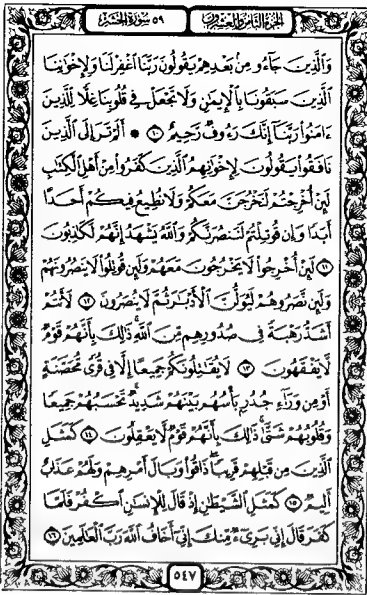 الجزء الثامن والعشرون
٥٩ سورة الحشر
وَالَّذِينَ جَآءُو مِنۢ بَعْدِهِمْ يَقُولُونَ رَبَّنَا ٱغْفِرْ لَنَا وَلِإِخْوَٰنِنَا
ٱلَّذِينَ سَبَقُونَا بِٱلْإِيمَٰنِ وَلَا تَجْعَلْ فِى قُلُوبِنَا غِلًّا لِّلَّذِينَ
ءَامَنُوا۟ رَبَّنَآ إِنَّكَ رَءُوفٌ رَّحِيمٌ ١٠ ۞ أَلَمْ تَرَ إِلَى ٱلَّذِينَ
نَافَقُوا۟ يَقُولُونَ لِإِخْوَٰنِهِمُ ٱلَّذِينَ كَفَرُوا۟ مِنْ أَهْلِ ٱلْكِتَٰبِ
لَئِنْ أُخْرِجْتُمْ لَنَخْرُجَنَّ مَعَكُمْ وَلَا نُطِيعُ فِيكُمْ أَحَدًا
أَبَدًا وَإِن قُوتِلْتُمْ لَنَنصُرَنَّكُمْ وَٱللَّهُ يَشْهَدُ إِنَّهُمْ لَكَٰذِبُونَ
١١ لَئِنْ أُخْرِجُوا۟ لَا يَخْرُجُونَ مَعَهُمْ وَلَئِن قُوتِلُوا۟ لَا يَنصُرُونَهُمْ
وَلَئِن نَّصَرُوهُمْ لَيُوَلُّنَّ ٱلْأَدْبَٰرَ ثُمَّ لَا يُنصَرُونَ ١٢ لَأَنتُمْ
أَشَدُّ رَهْبَةً فِى صُدُورِهِم مِّنَ ٱللَّهِ ۚ ذَٰلِكَ بِأَنَّهُمْ قَوْمٌ
لَّا يَفْقَهُونَ ١٣ لَا يُقَٰتِلُونَكُمْ جَمِيعًا إِلَّا فِى قُرًى مُّحَصَّنَةٍ
أَوْ مِن وَرَآءِ جُدُرٍۭ ۚ بَأْسُهُم بَيْنَهُمْ شَدِيدٌ ۚ تَحْسَبُهُمْ جَمِيعًا
وَقُلُوبُهُمْ شَتَّىٰ ۚ ذَٰلِكَ بِأَنَّهُمْ قَوْمٌ لَّا يَعْقِلُونَ ١٤ كَمَثَلِ
ٱلَّذِينَ مِن قَبْلِهِمْ قَرِيبًا ۖ ذَاقُوا۟ وَبَالَ أَمْرِهِمْ وَلَهُمْ عَذَابٌ
أَلِيمٌ ١٥ كَمَثَلِ ٱلشَّيْطَٰنِ إِذْ قَالَ لِلْإِنسَٰنِ ٱكْفُرْ فَلَمَّا
كَفَرَ قَالَ إِنِّى بَرِىٓءٌ مِّنكَ إِنِّىٓ أَخَافُ ٱللَّهَ رَبَّ ٱلْعَٰلَمِينَ ١٦
٥٤٧